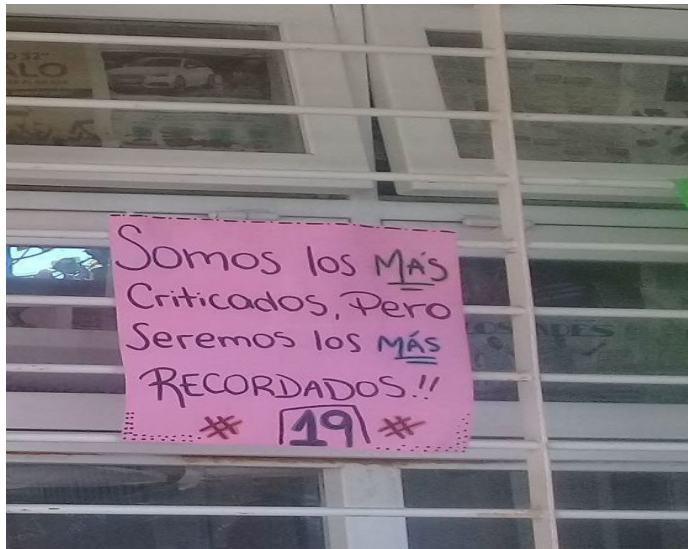 ALO
Somos los MÁS
Criticados, Pero
Seremos los MÁS
RECORDADOS!!
# 19 #